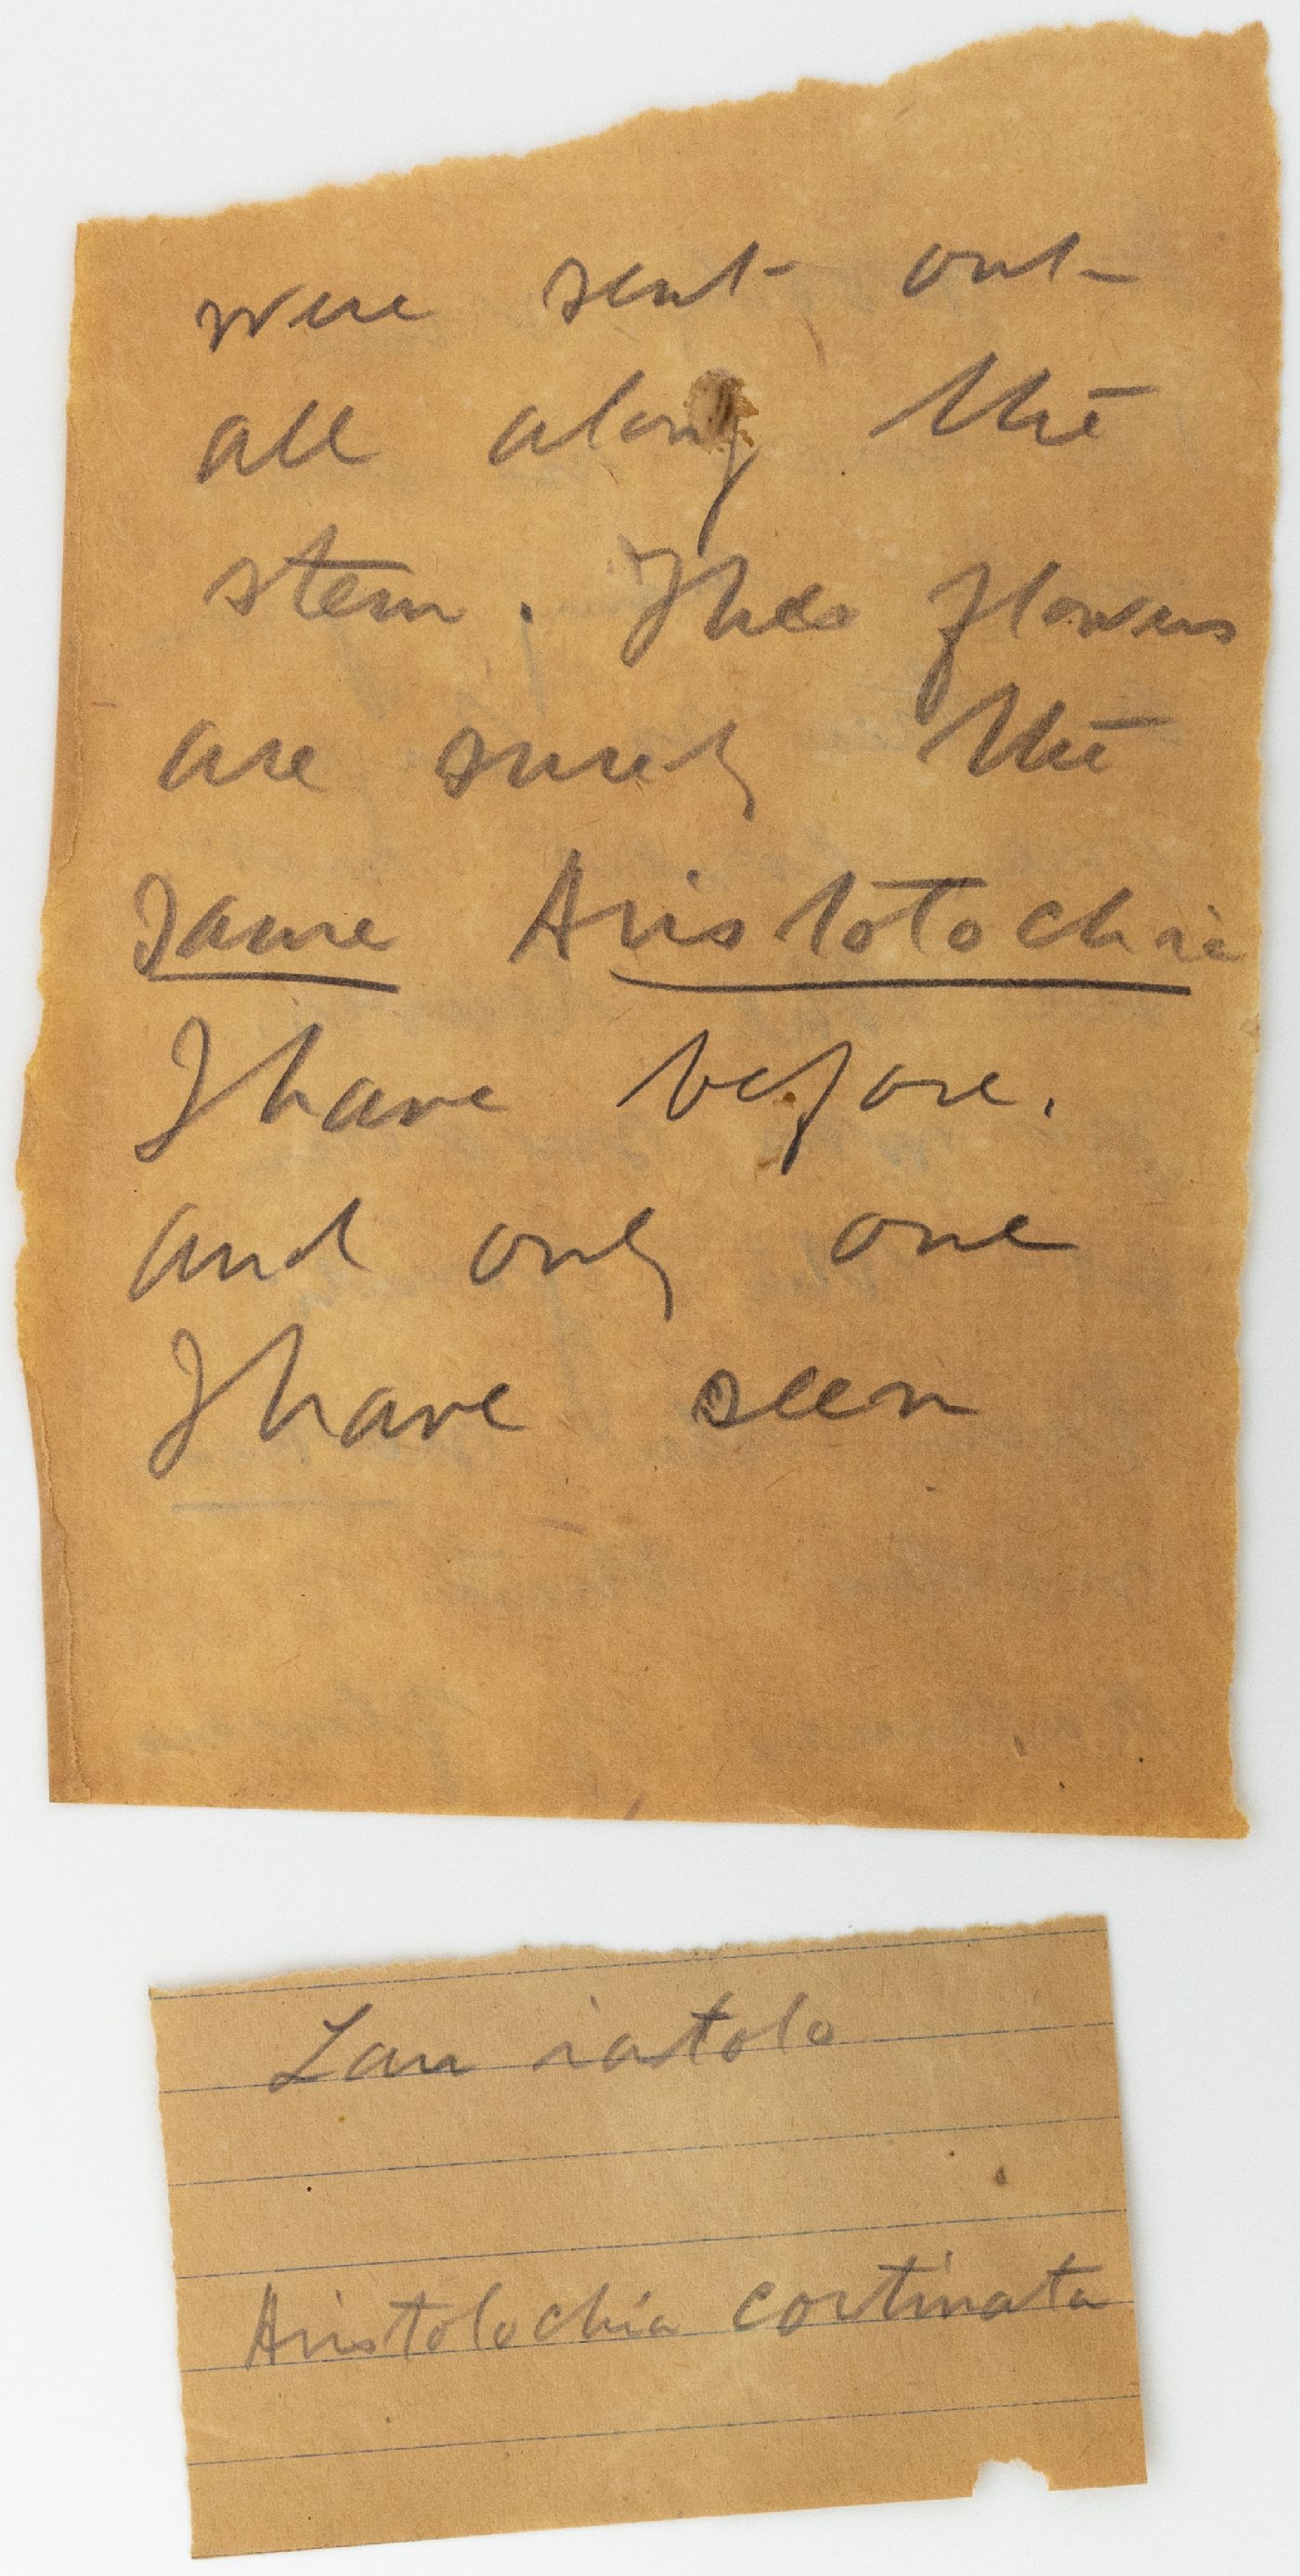 were sent out
all along the
stem. Thes flowers
are surely the
same Aristolochia
I have before.
and only one
I have seen
Lau iatolo
Aristolochia cortinata